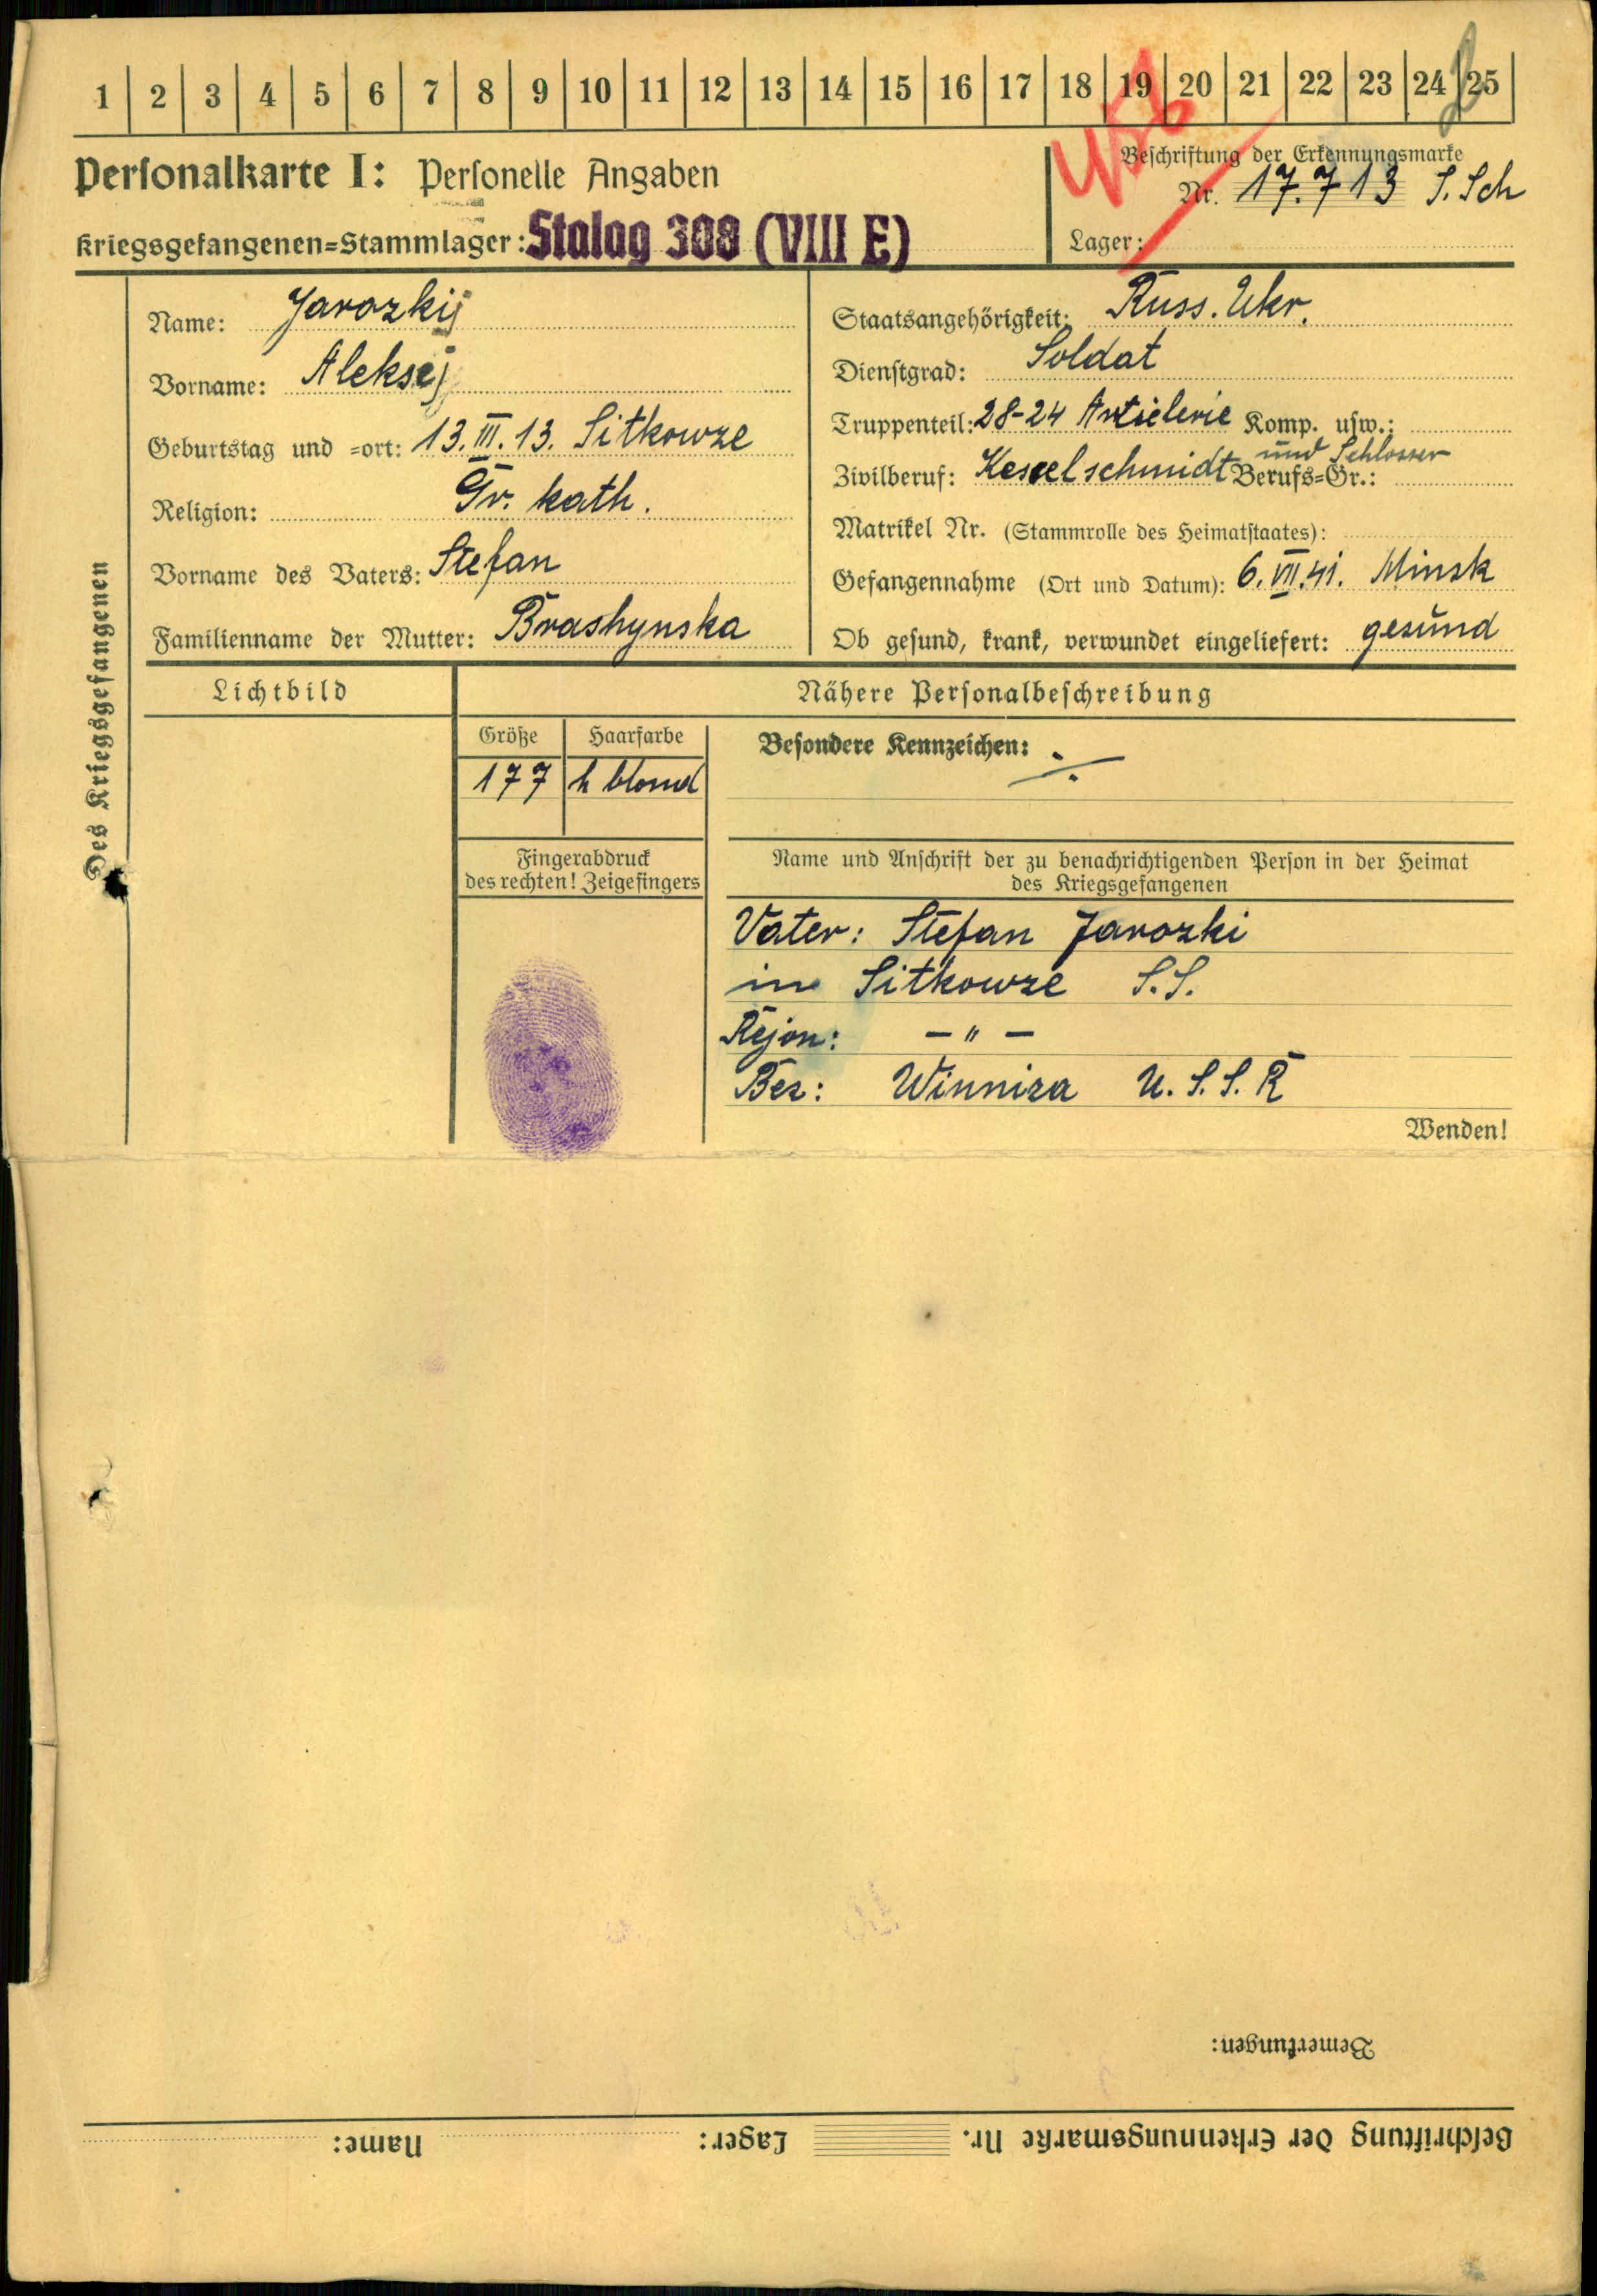 1 2 3 4 5 6 7 8 9 10 11 12 13 14 15 16 17 18 19 20 21 22 23 24 25
Personalkarte I: Personelle Angaben
Kriegsgefangenen=Stammlager: Stalag 308 (VIII E)
Beschriftung der Erkennungsmarke
Nr. 17.713 S. Sch
Lager:
Des Kriegsgefangenen
Name: Jarozkij
Vorname: Aleksej
Geburtstag und =ort: 13. III. 13. Sitkowze
Religion: Gr. kath.
Vorname des Vaters: Stefan
Familienname der Mutter: Brashynska
Staatsangehörigkeit: Russ. Ukr.
Dienstgrad: Soldat
Truppenteil: 28-24 Artielerie Komp. usw.:
Zivilberuf: Kesselschmidt und Schlosser Berufs=Gr.:
Matrikel Nr. (Stammrolle des Heimatstaates):
Gefangennahme (Ort und Datum): 6. VII. 41. Minsk
Ob gesund, krank, verwundet eingeliefert: gesund
Lichtbild
Nähere Personalbeschreibung
Größe
Haarfarbe
177
h blond
Besondere Kennzeichen: ·/.
Fingerabdruck
des rechten! Zeigefingers
Name und Anschrift der zu benachrichtigenden Person in der Heimat
des Kriegsgefangenen
Vater: Stefan Jarozki
in Sitkowze S.S.
Rejon: - " -
Bez: Winniza U.S.S.R
Wenden!
Bemerkungen:
Beschriftung der Erkennungsmarke Nr. Lager: Name: